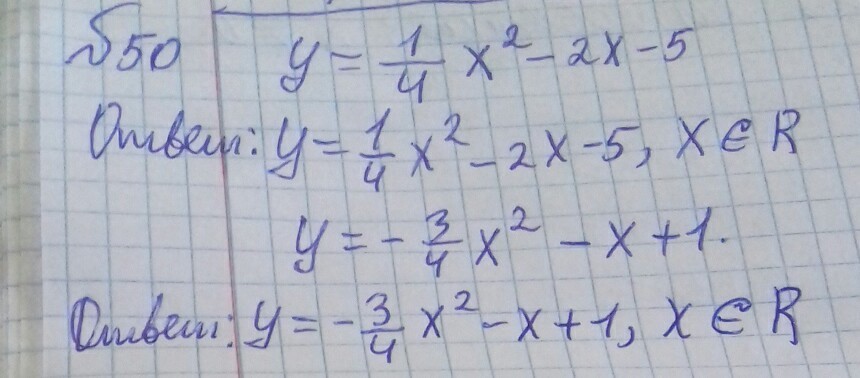 №50 y = 1/4 x² - 2x - 5
Ответ: y = 1/4 x² - 2x - 5, x ∈ R
y = - 3/4 x² - x + 1.
Ответ: y = - 3/4 x² - x + 1, x ∈ R